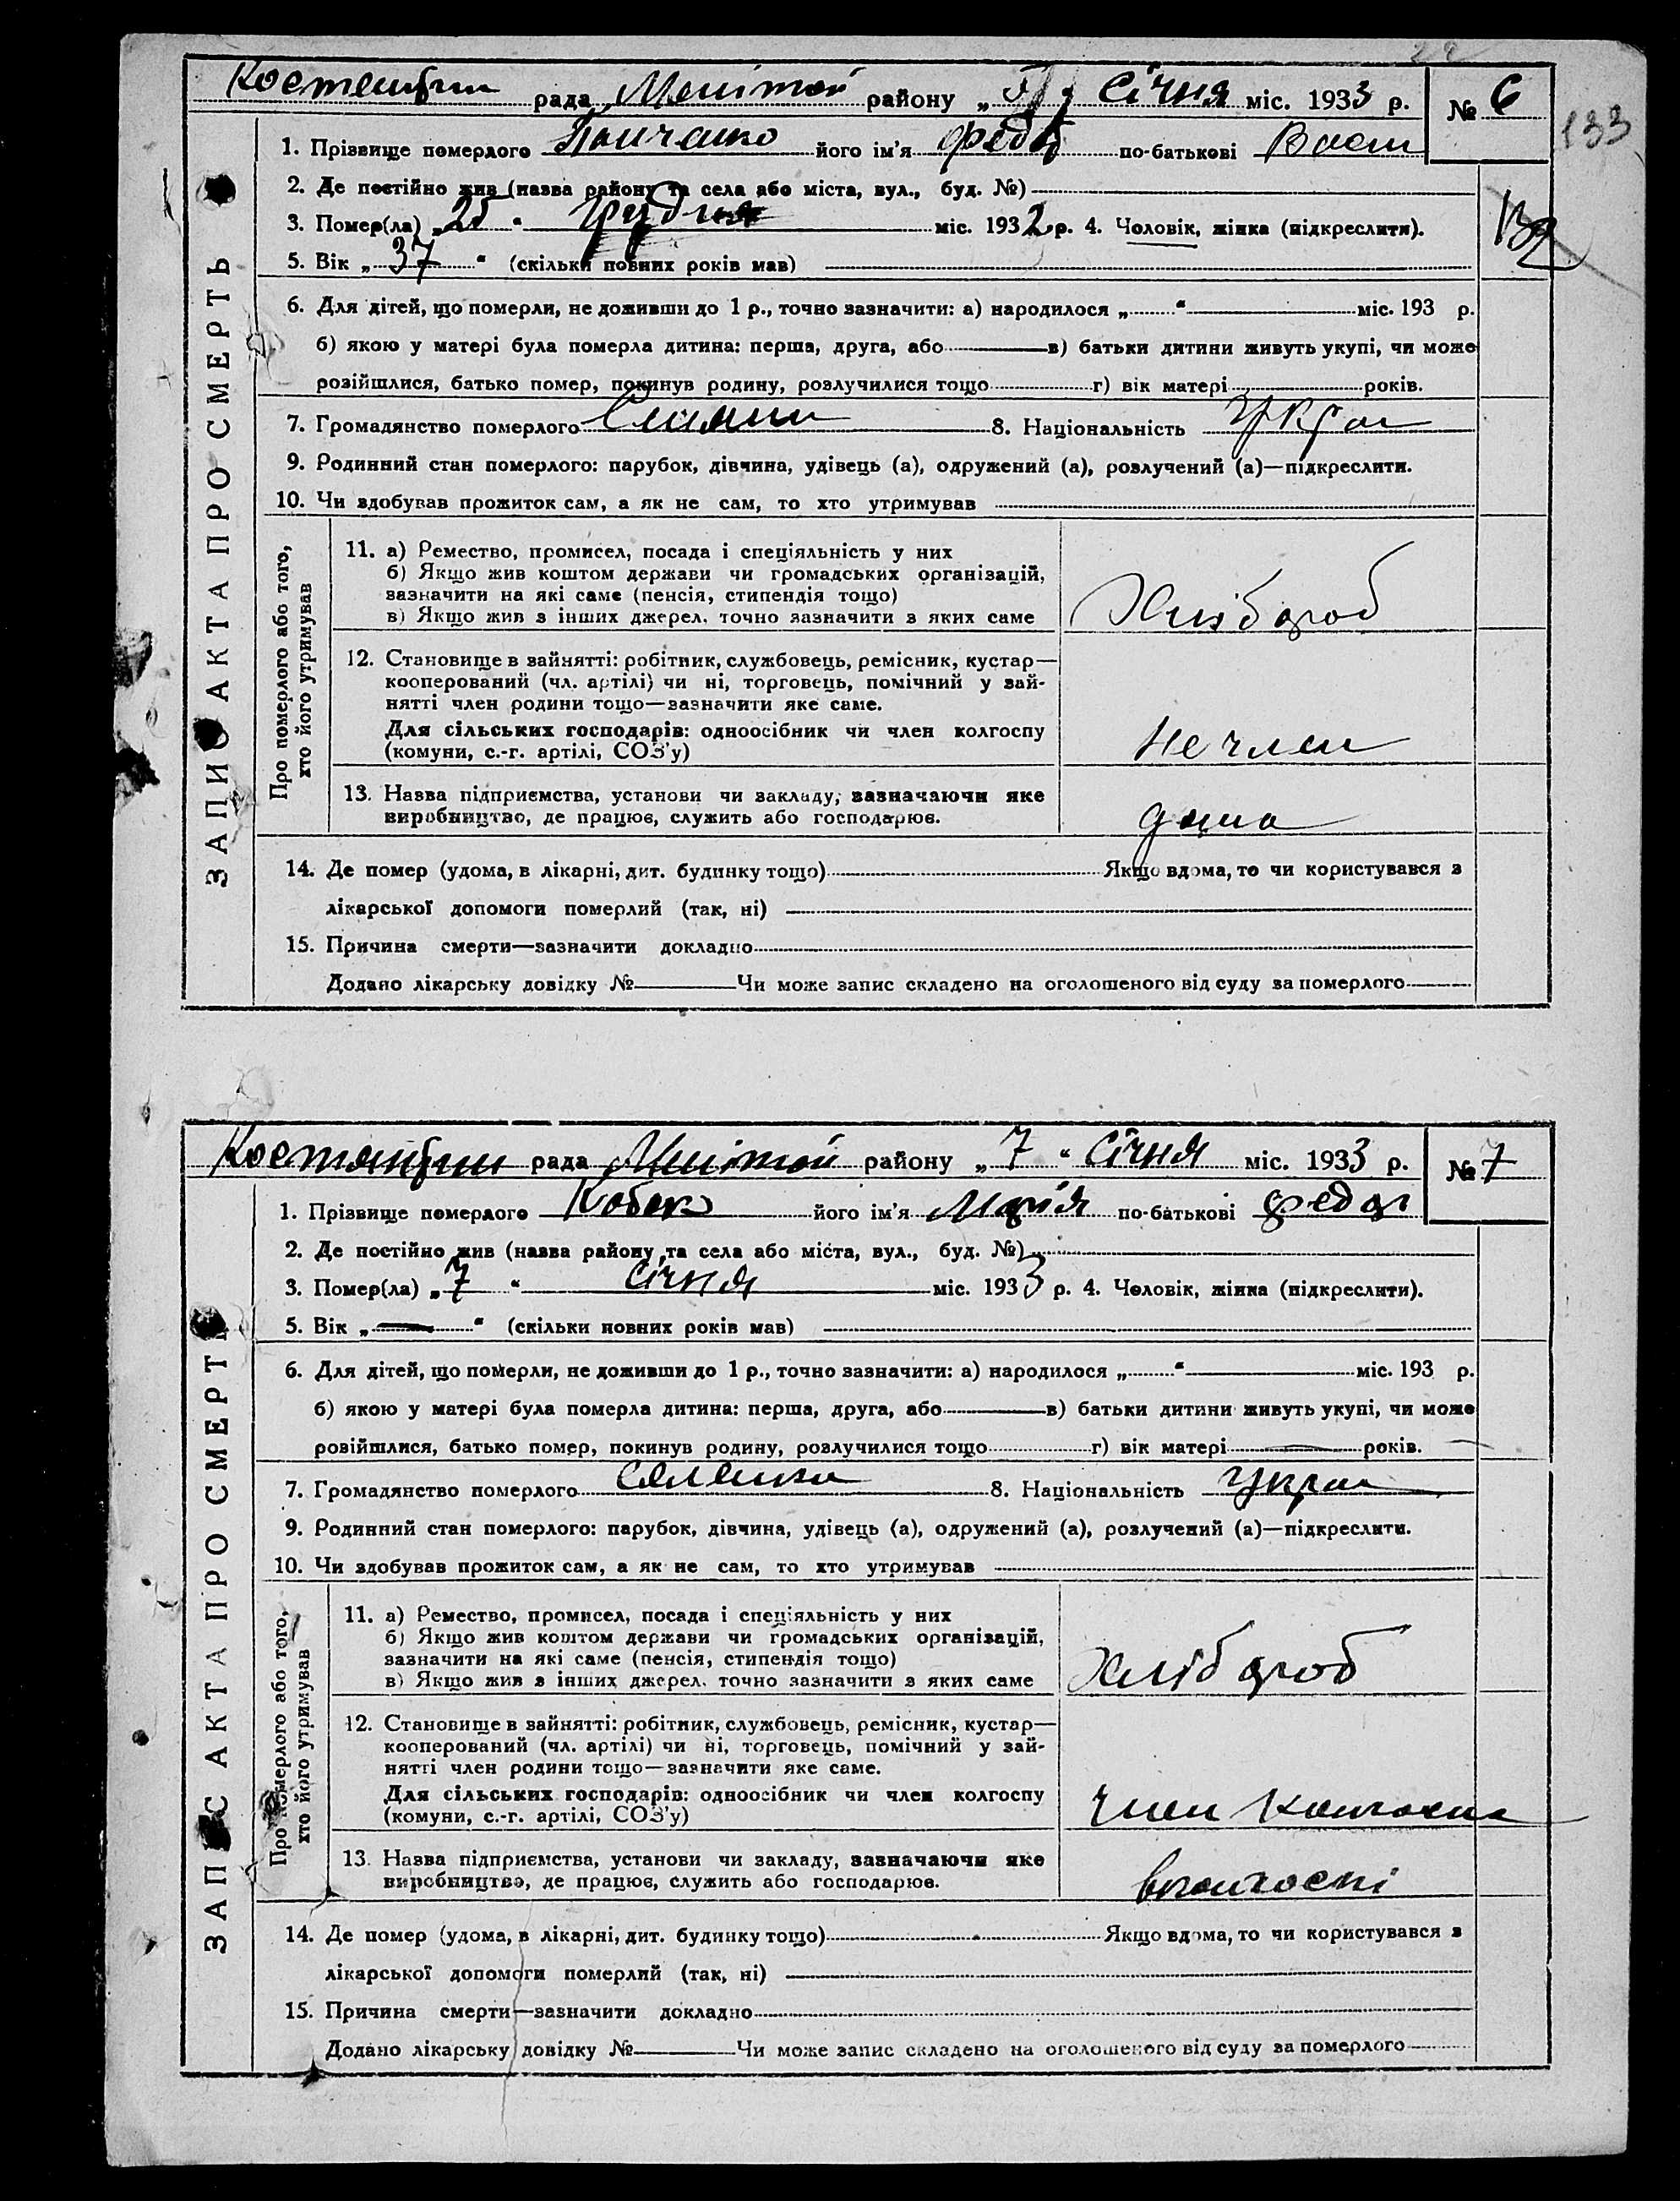 рада район у „ " Січня міс. 1933 р. № 6
133
1. Прізвище померлого його ім'я Федір по-батькові
2. Де постійно жив (назва району та села або міста, вул., буд. №)
3. Помер(ла) „25 " Грудня міс. 1932 р. 4. Чоловік, жінка (підкреслити).
132
5. Вік „ 37 " (скільки повних років мав)
6. Для дітей, що померли, не доживши до 1 р., точно зазначити: а) народилося „ " міс. 193 р.
б) якою у матері була померла дитина: перша, друга, або в) батьки дитини живуть укупі, чи може
розійшлися, батько помер, покинув родину, розлучилися тощо г) вік матері років.
7. Громадянство померлого 8. Національність Украї
9. Родинний стан померлого: парубок, дівчина, удівець (а), одружений (а), розлучений (а)—підкреслити.
10. Чи здобував прожиток сам, а як не сам, то хто утримував
ЗАПИС АКТА ПРО СМЕРТЬ
Про померлого або того,
хто його утримував
11. а) Ремество, промисел, посада і спеціяльність у них
б) Якщо жив коштом держави чи громадських організацій,
зазначити на які саме (пенсія, стипендія тощо)
в) Якщо жив з інших джерел, точно зазначити з яких саме
Хлібороб
12. Становище в зайнятті: робітник, службовець, ремісник, кустар—
кооперований (чл. артілі) чи ні, торговець, помічний у зай-
нятті член родини тощо—зазначити яке саме.
Для сільських господарів: одноосібник чи член колгоспу
(комуни, с.-г. артілі, СОЗ'у)
не член
13. Назва підприємства, установи чи закладу, зазначаючи яке
виробництво, де працює, служить або господарює.
дома
14. Де помер (удома, в лікарні, дит. будинку тощо) Якщо вдома, то чи користувався з
лікарської допомоги померлий (так, ні)
15. Причина смерти—зазначити докладно
Додано лікарську довідку № Чи може запис складено на оголошеного від суду за померлого
рада району „ 7 " Січня міс. 1933 р. № 7
1. Прізвище померлого Кобець його ім'я Марія по-батькові Федор
2. Де постійно жив (назва району та села або міста, вул., буд. №)
3. Помер(ла) „ 7 " Січня міс. 1933 р. 4. Чоловік, жінка (підкреслити).
5. Вік „ — " (скільки повних років мав)
6. Для дітей, що померли, не доживши до 1 р., точно зазначити: а) народилося „ " міс. 193 р.
б) якою у матері була померла дитина: перша, друга, або в) батьки дитини живуть укупі, чи може
розійшлися, батько помер, покинув родину, розлучилися тощо г) вік матері років.
7. Громадянство померлого Селянка 8. Національність Украї
9. Родинний стан померлого: парубок, дівчина, удівець (а), одружений (а), розлучений (а)—підкреслити.
10. Чи здобував прожиток сам, а як не сам, то хто утримував
ЗАПИС АКТА ПРО СМЕРТЬ
Про померлого або того,
хто його утримував
11. а) Ремество, промисел, посада і спеціяльність у них
б) Якщо жив коштом держави чи громадських організацій,
зазначити на які саме (пенсія, стипендія тощо)
в) Якщо жив з інших джерел, точно зазначити з яких саме
Хлібороб
12. Становище в зайнятті: робітник, службовець, ремісник, кустар—
кооперований (чл. артілі) чи ні, торговець, помічний у зай-
нятті член родини тощо—зазначити яке саме.
Для сільських господарів: одноосібник чи член колгоспу
(комуни, с.-г. артілі, СОЗ'у)
член колгоспа
13. Назва підприємства, установи чи закладу, зазначаючи яке
виробництво, де працює, служить або господарює.
вколгоспі
14. Де помер (удома, в лікарні, дит. будинку тощо) Якщо вдома, то чи користувався з
лікарської допомоги померлий (так, ні)
15. Причина смерти—зазначити докладно
Додано лікарську довідку № Чи може запис складено на оголошеного від суду за померлого